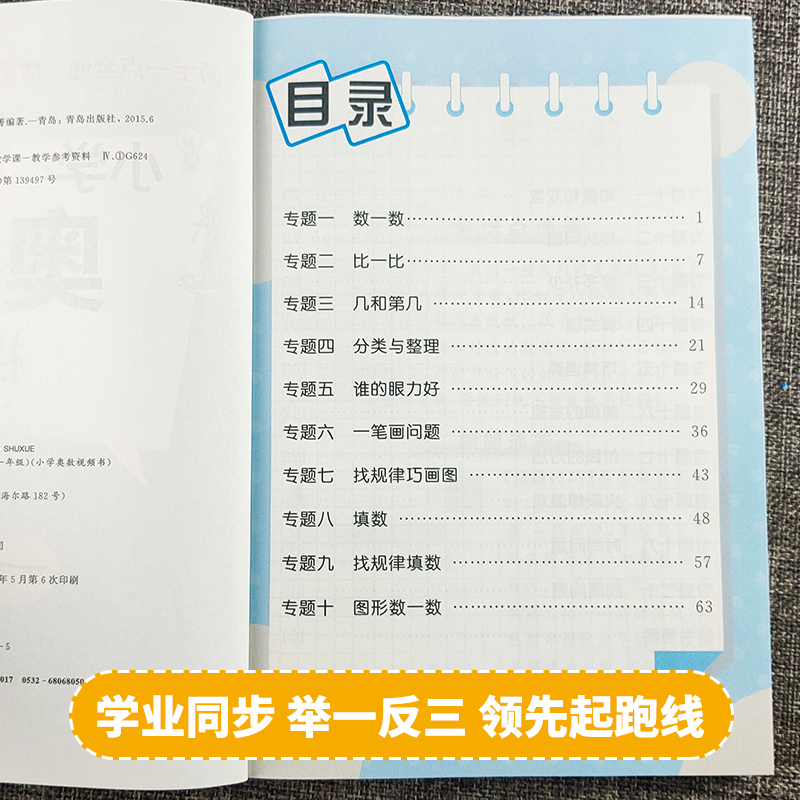 著编著.—青岛:青岛出版社,2015.6
学课－教学参考资料 Ⅳ.①G624
第 139497 号
SHUXUE
一年级)(小学奥数视频书)
海尔路 182 号)
年 5 月第 6 次印刷
－5
017 0532－68068050
目录
专题一 数一数 1
专题二 比一比 7
专题三 几和第几 14
专题四 分类与整理 21
专题五 谁的眼力好 29
专题六 一笔画问题 36
专题七 找规律巧画图 43
专题八 填数 48
专题九 找规律填数 57
专题十 图形数一数 63
学业同步 举一反三 领先起跑线